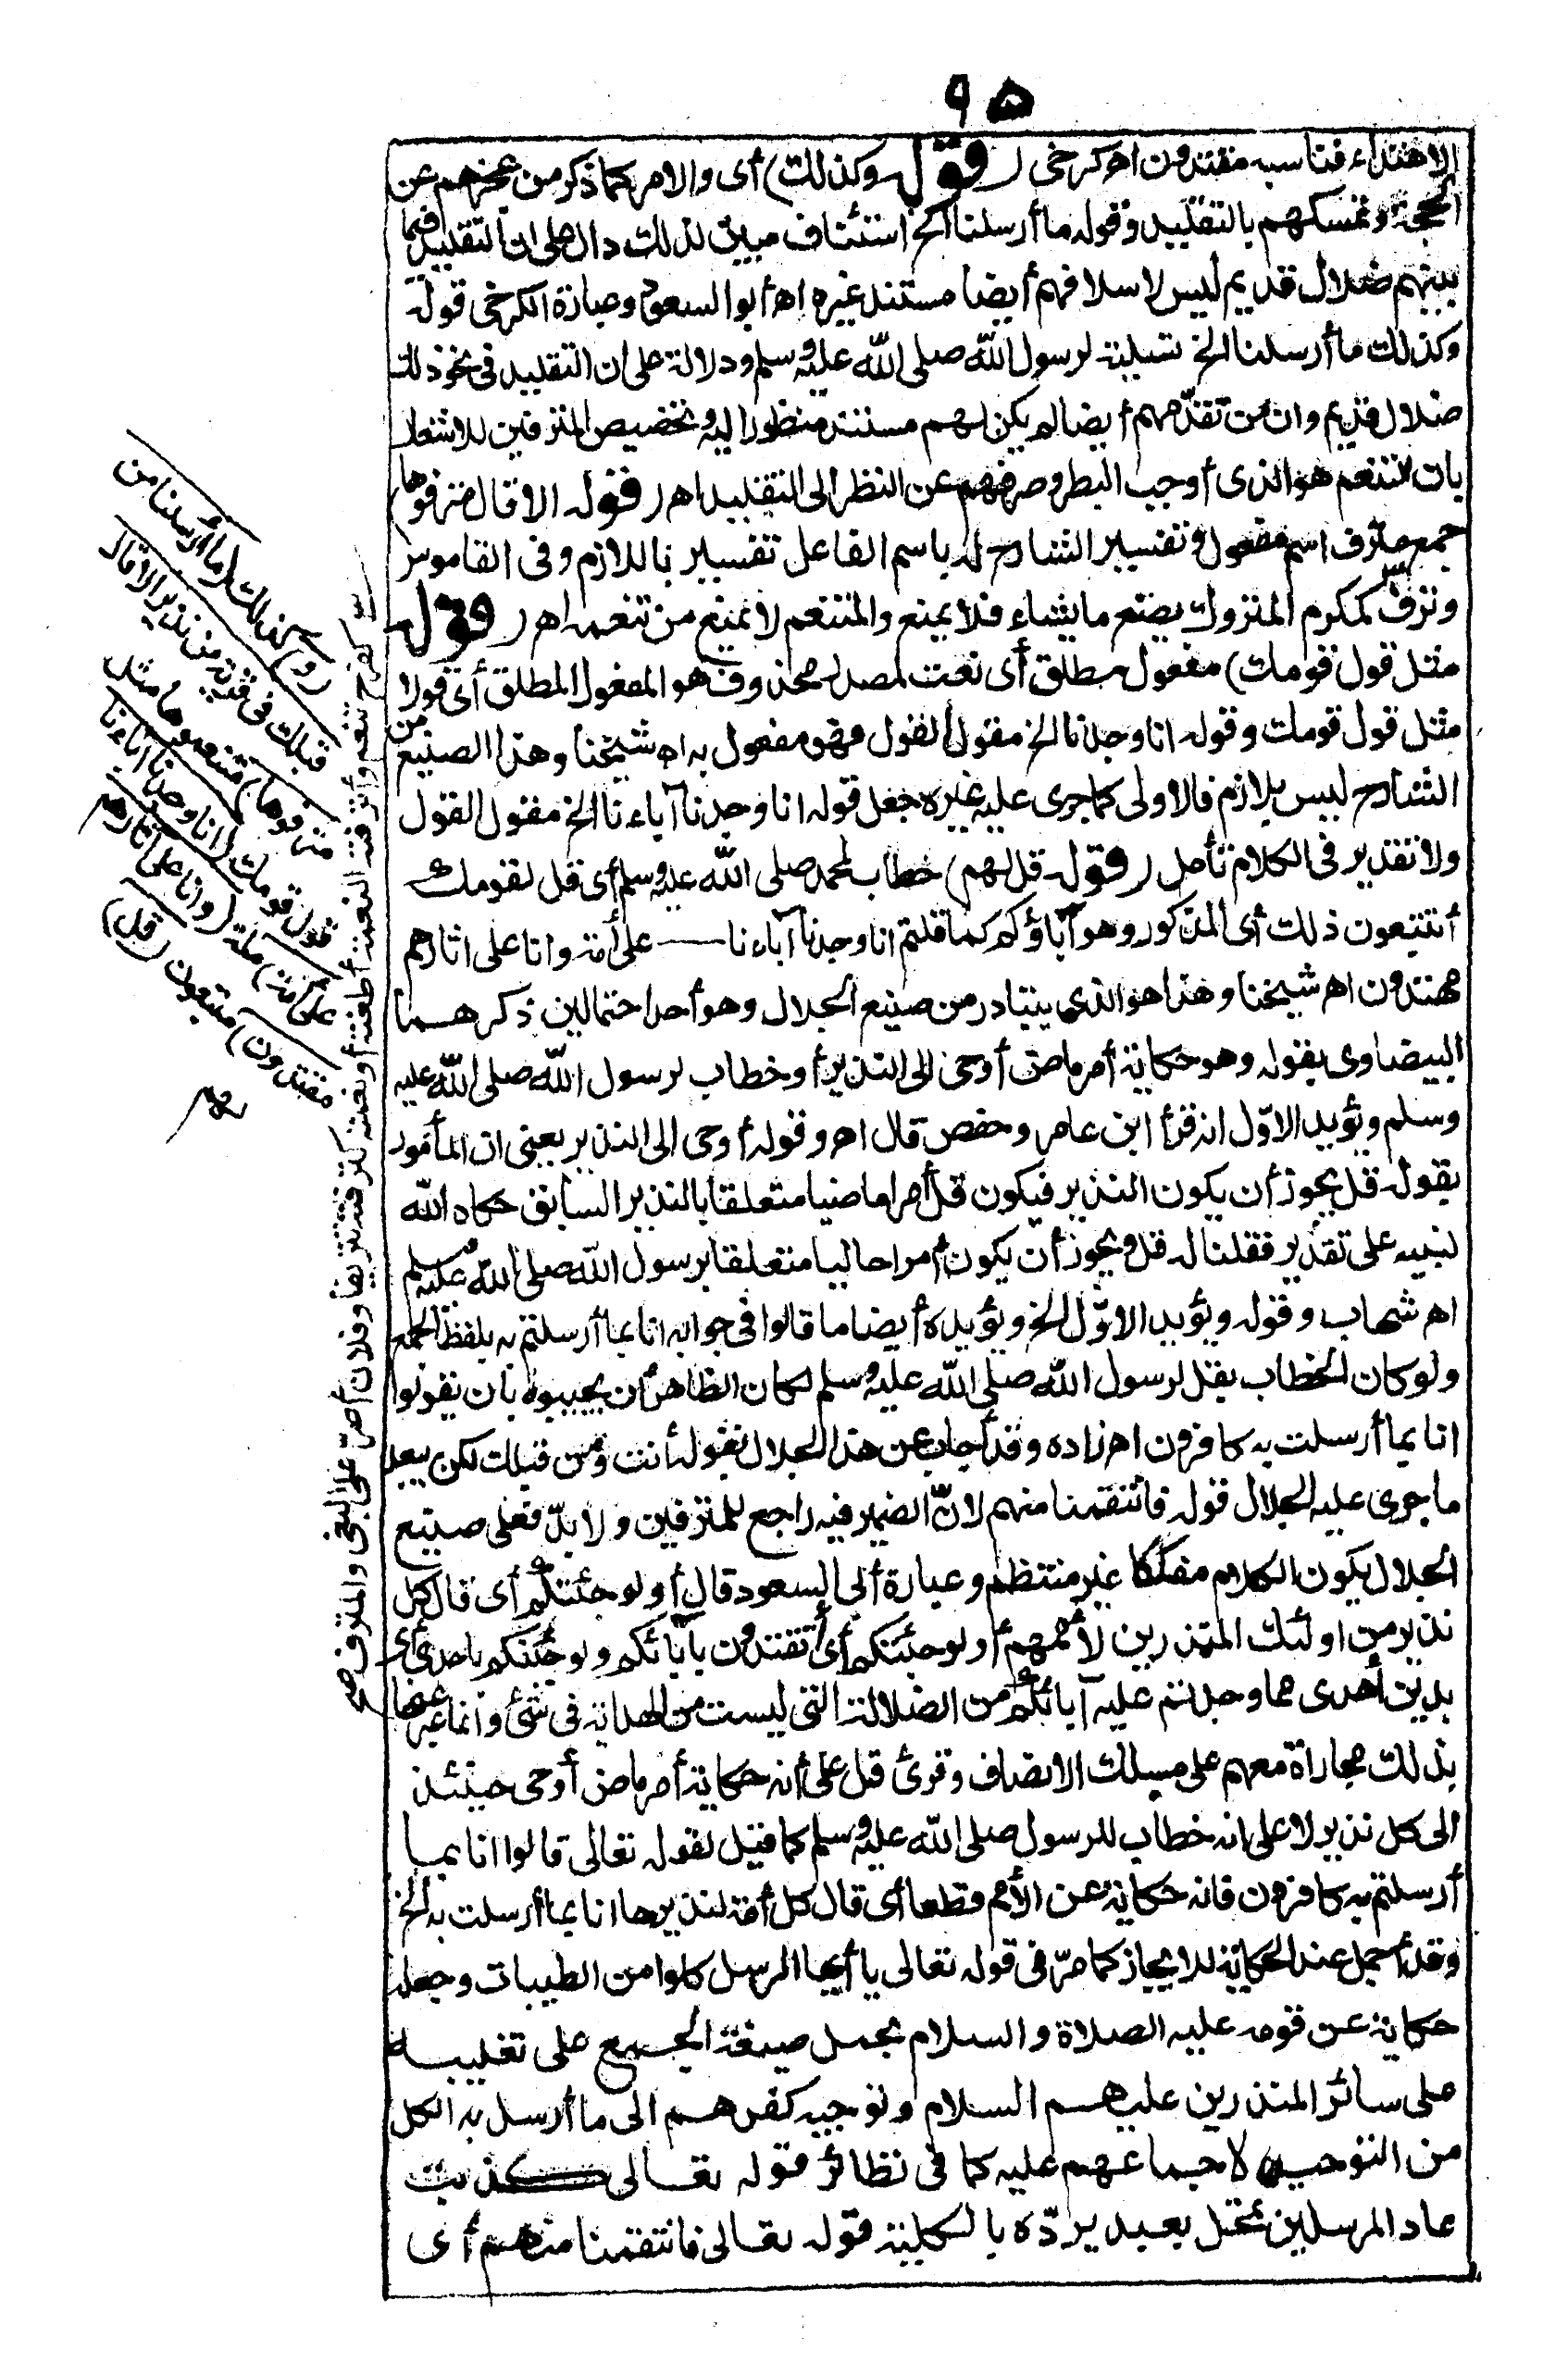 ٩٥
الاهتداء فناسبه مقتدون اه كرخى (قوله وكذلك) أى والامر كما ذكر من عجزهم عن
الحجة وتمسكهم بالتقليد وقوله ما أرسلنا الخ استئناف مبين لذلك دال على ان التقليد فيما
بينهم ضلال قديم ليس لاسلافهم أيضا مستند غيره اه أبو السعود وعبارة الكرخى قوله
وكذلك ما أرسلنا الخ تسلية لرسول الله صلى الله عليه وسلم ودلالة على ان التقليد فى نحو ذلك
ضلال قديم وان من تقدمهم أيضا لم يكن لهم مستند منظور اليه وتخصيص المترفين للاشعار
بان التنعم هو الذى أوجب البطر وصرفهم عن النظر الى التقليد اه (قوله الا قال مترفوها)
جمع مترف اسم مفعول وتفسير الشارح له باسم الفاعل تفسير باللازم وفى القاموس
وترف كمكرم المتروك يصنع ما يشاء فلا يمنع والمتنعم لا يمنع من تنعمه اه (قوله
مثل قول قومك) مفعول مطلق أى نعت لمصدر محذوف هو المفعول المطلق أى قولا
مثل قول قومك وقوله انا وجدنا الخ مقول القول فهو مفعول به اه شيخنا وهذا الصنيع من
الشارح ليس بلازم فالاولى كما جرى عليه غيره جعل قوله انا وجدنا آباءنا الخ مقول القول
ولا تقدير فى الكلام تأمل (قوله قل لهم) خطاب لمحمد صلى الله عليه وسلم أى قل لقومك
أتتبعون ذلك أى المذكور وهو آباؤكم كما قلتم انا وجدنا آباءنا على أمة وانا على اثارهم
مهتدون اه شيخنا وهذا هو الذى يتبادر من صنيع الجلال وهو أحد احتمالين ذكرهما
البيضاوى بقوله وهو حكاية أمر ماض أوحى الى النذير أو خطاب لرسول الله صلى الله عليه
وسلم ويؤيد الاول انه قرأ ابن عامر وحفص قال اه وقوله أوحى الى النذير يعنى ان المأمور
بقوله قل يجوز أن يكون النذير فيكون قل أمرا ماضيا متعلقا بالنذير السابق حكاه الله
لنبيه على تقدير فقلنا له قل ويجوز أن يكون أمرا حاليا متعلقا برسول الله صلى الله عليه وسلم
اه شهاب وقوله ويؤيد الاول الخ ويؤيده أيضا ما قالوا فى جوابه انا بما أرسلتم به بلفظ الجمع
ولو كان الخطاب بقل لرسول الله صلى الله عليه وسلم لكان الظاهر أن يجيبوه بان يقولوا
انا بما أرسلت به كافرون اه زاده وقد أجاب عن هذا الجلال بقوله أنت ومن قبلك لكن يبعد
ما جرى عليه الجلال قوله فانتقمنا منهم لان الضمير فيه راجع للمترفين ولا بد فعلى صنيع
الجلال يكون الكلام مفككا غير منتظم وعبارة أبى السعود قال أولو جئتكم أى قال كل
نذير من اولئك المنذرين لأممهم أولو جئتكم أى أتقتدون بآبائكم ولو جئتكم باهدى أى
بدين أهدى مما وجدتم عليه آبائكم من الضلالة التى ليست من الهداية فى شئ وانما عبر عنها
بذلك مجاراة معهم على مسلك الانصاف وقرئ قل على أنه حكاية أمر ماض أوحى حينئذ
الى كل نذير لا على انه خطاب للرسول صلى الله عليه وسلم كما قيل لقوله تعالى قالوا انا بما
أرسلتم به كافرون فانه حكاية عن الأمم قطعا أى قال كل أمة لنذيرها انا بما أرسلت به الخ
وقد أجمل عند الحكاية للايجاز كما مر فى قوله تعالى يا أيها الرسل كلوا من الطيبات وجعله
حكاية عن قومه عليه الصلاة والسلام بحمل صيغة الجمع على تغليبه
على سائر المنذرين عليهم السلام وتوجيه كفرهم الى ما أرسل به الكل
من التوحيد لاجماعهم عليه كما فى نظائر قوله تعالى كذبت
عاد المرسلين تمحل بعيد يرده بالكلية قوله تعالى فانتقمنا منهم أى
(وكذلك ما أرسلنا من
قبلك فى قرية من نذير الا قال
مترفوها) متنعموها مثل
قول قومك (انا وجدنا اباءنا
على أمة) ملة (وانا على اثارهم
مقتدون) متبعون (قل)
كفرح تنعم وأترفته النعمة أطغته أو نعمته كترفته تتريفا وفلان أصر على البغى والمترف صح